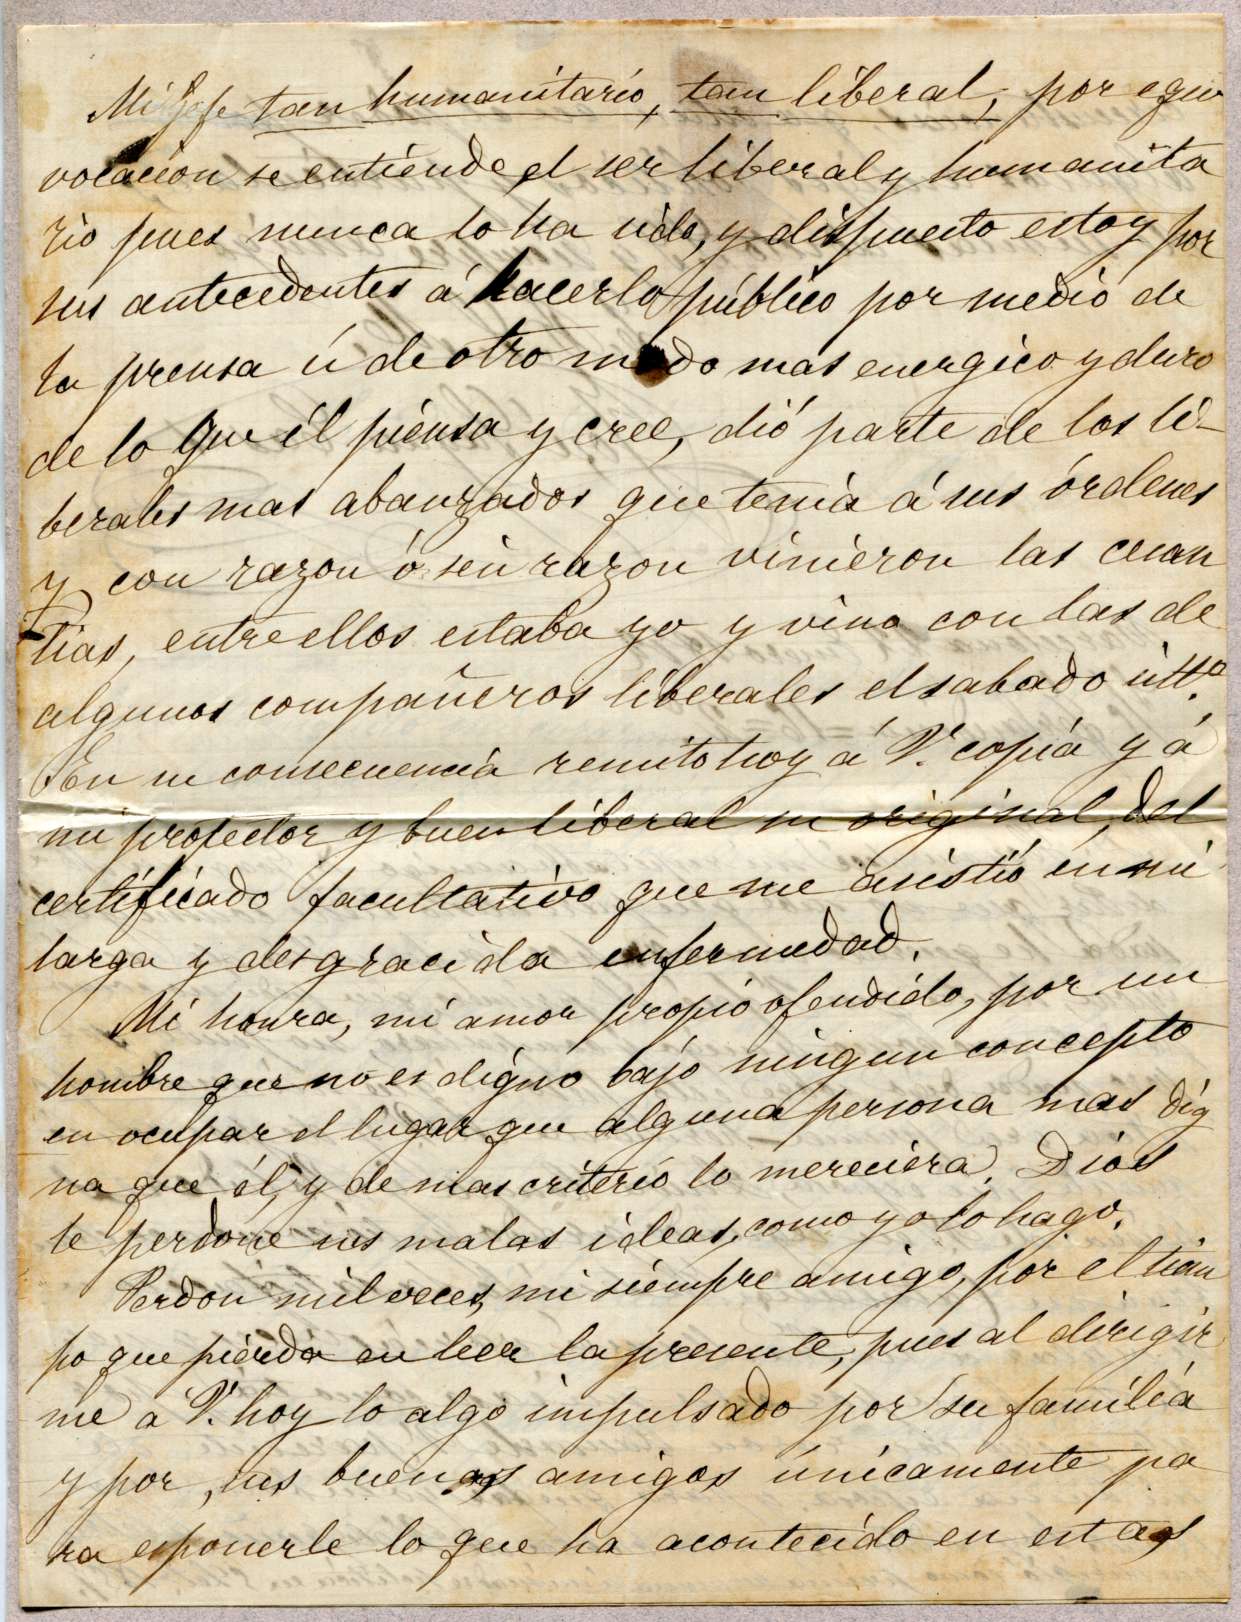 Mi Gefe tan humanitario, tan liberal, por equi
vocacion se entiende el ser liberal y humanita
rio pues nunca lo ha sido, y dispuesto estoy por
sus antecedentes á hacerlo público por medio de
la prensa ú de otro modo mas energico y duro
de lo que él piensa y cree, dió parte de los li-
berales mas abanzados que tenia á sus órdenes
y con razon ó sin razon vinieron las cesan
tias, entre ellos estaba yo y vino con las de
algunos compañeros liberales el sabado ultº.
En su consecuencia remito hoy á V. copia y á
mi protector y buen liberal su original, del
certificado facultativo que me asistió en mi
larga y desgracida enfermedad.
Mi honra, mi amor propio ofendido, por un
hombre que no es digno bajo ningun concepto
en ocupar el lugar que alguna persona mas dig
na que él, y de mas criterio lo mereciera. Dios
le perdone sus malas ideas, como yo lo hago.
Perdon mil veces, mi siempre amigo, por el tiem
po que pierda en leer la presente, pues al dirigir
me a V. hoy lo algo impulsado por su familia
y por, sus buenos amigos únicamente pa
ra esponerle lo que ha acontecido en estas